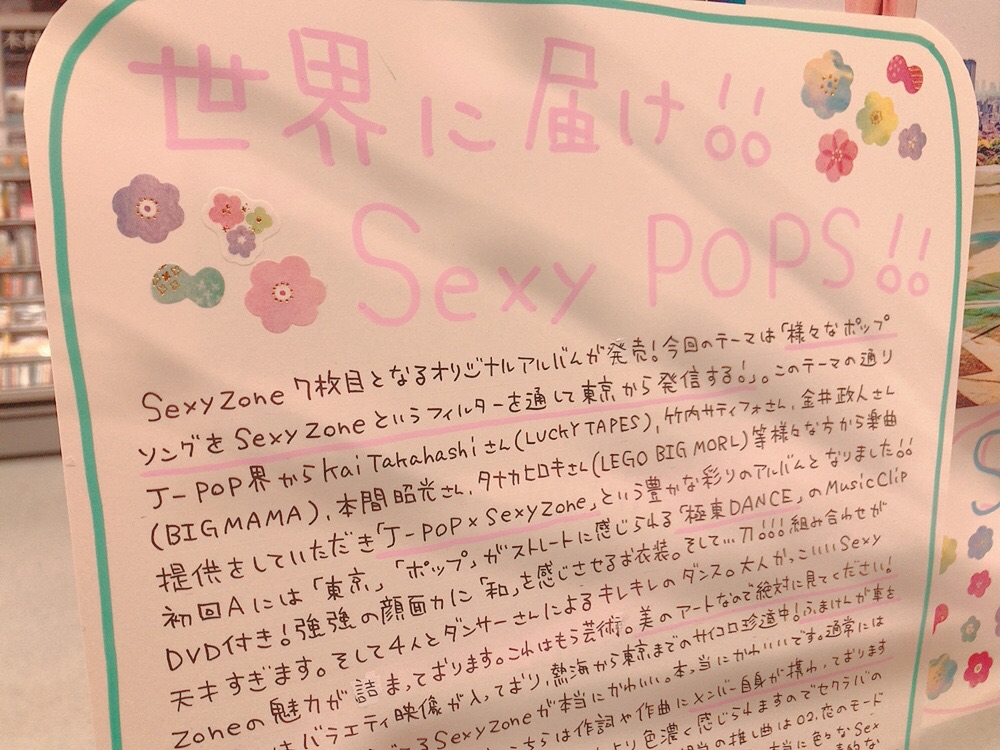 世界に届け!!
Sexy POPS!!
SexyZone 7枚目となるオリジナルアルバムが発売!今回のテーマは「様々なポップ
ソングをSexyZoneというフィルターを通して東京から発信する!」。このテーマの通り
J-POP界からKai Takahashiさん(LUCKY TAPES),竹内サティフォさん,金井政人さん
(BIGMAMA),本間昭光さん,タナカヒロキさん(LEGO BIG MORL)等様々な方から楽曲
提供をしていただき「J-POP×SexyZone」という豊かな彩りのアルバムとなりました!!
初回Aには「東京」「ポップ」がストレートに感じられる「極東DANCE」のMusicClip
DVD付き!強強の顔面力に「和」を感じさせるお衣装。そして…刀!!!組み合わせが
天才すぎます。そして4人とダンサーさんによるキレキレのダンス。大人かっこいいSexy
Zoneの魅力が詰まっております。これはもう芸術。美のアートなので絶対に見てください!
はバラエティ映像が入っており,熱海から東京までのサイコロ珍道中!ふまけんが車を
るSexyZoneが本当にかわいい。本っ当にかわいいです。通常には
ちらは作詞や作曲にメンバー自身が携わっております
より色濃く感じられますのでセクラバの
の推し曲は02.恋のモード
本当に色々なSex